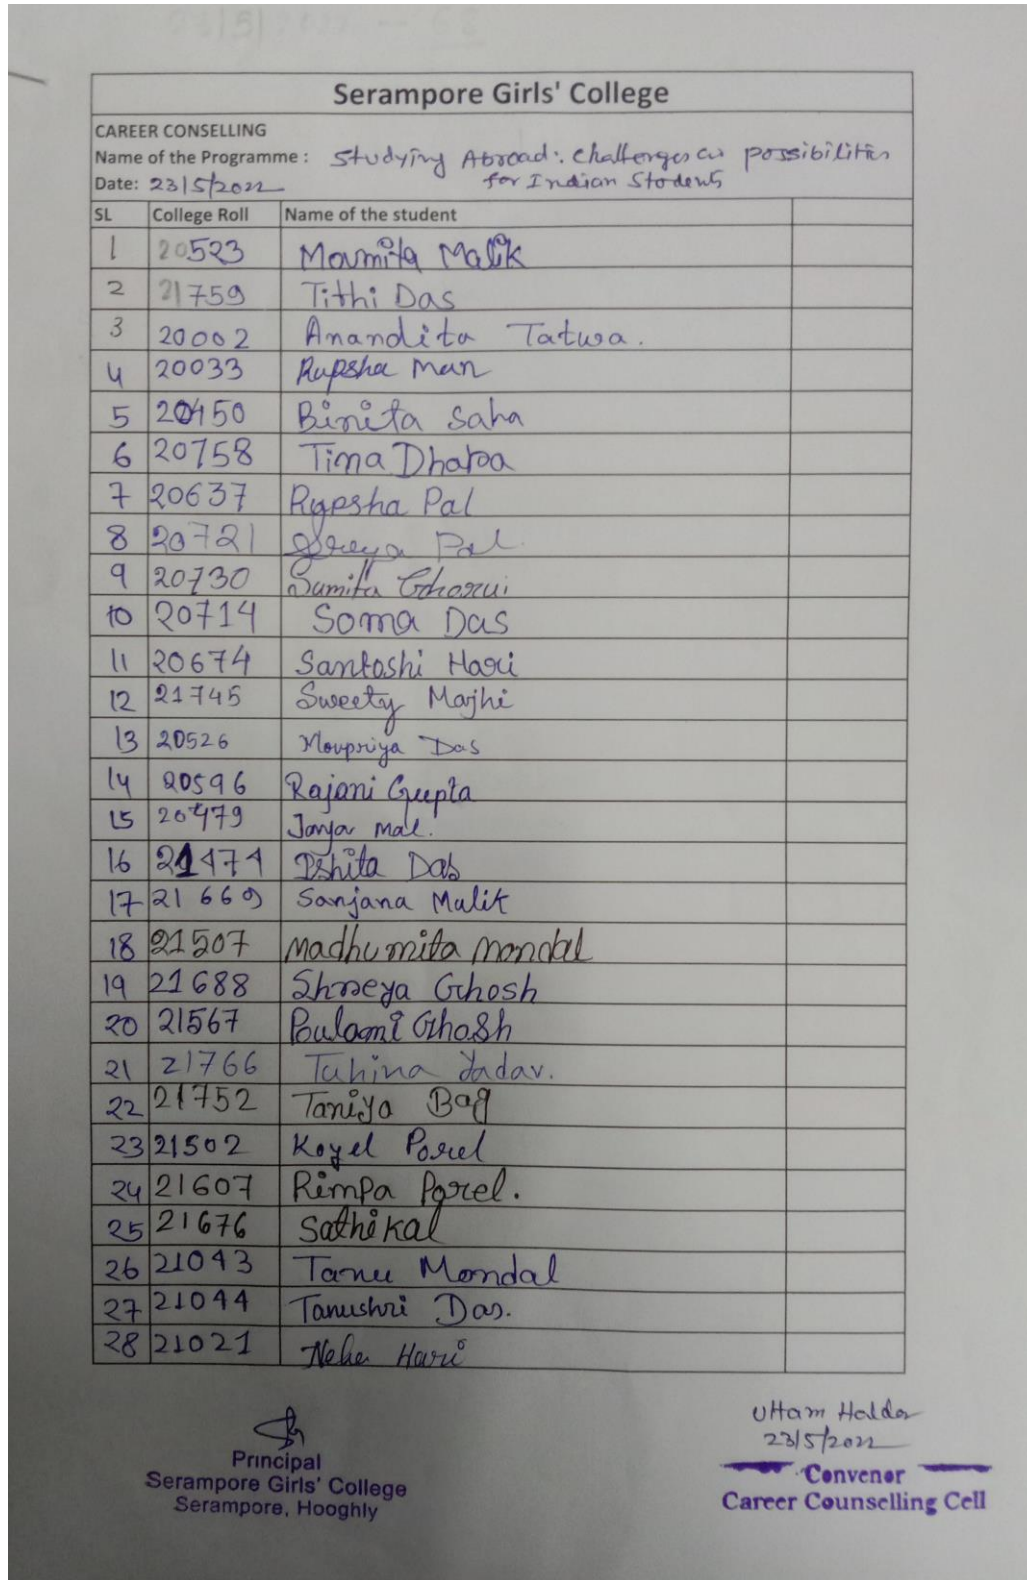 Serampore Girls' College
CAREER CONSELLING
Name of the Programme : Studying Abroad: Challenges & possibilities
for Indian Students
Date: 23/5/2022
SL College Roll Name of the student
1 20523 Moumita Malik
2 21759 Tithi Das
3 20002 Anandita Tatwa.
4 20033 Rupsha Man
5 20450 Binita Saha
6 20758 Tima Dhara
7 20637 Rupsha Pal
8 20721 Sreya Pal.
9 20730 Sumita Ghorui
10 20714 Soma Das
11 20674 Santoshi Hari
12 21745 Sweety Majhi
13 20526 Moupriya Das
14 20596 Rajani Gupta
15 20479 Mal.
16 21474 Ishita Das
17 21669 Sanjana Malik
18 21507 Madhumita Mondal
19 21688 Shreya Ghosh
20 21567 Poulami Ghosh
21 21766 Tuhina Yadav.
22 21752 Taniya Bag
23 21502 Koyel Porel
24 21607 Rimpa Porel.
25 21676 Sathi Kal
26 21043 Tanu Mondal
27 21044 Tanushri Das.
28 21021 Neha Hari
Uttam Halder
23/5/2022
Principal
Serampore Girls' College
Serampore, Hooghly
Convenor
Career Counselling Cell